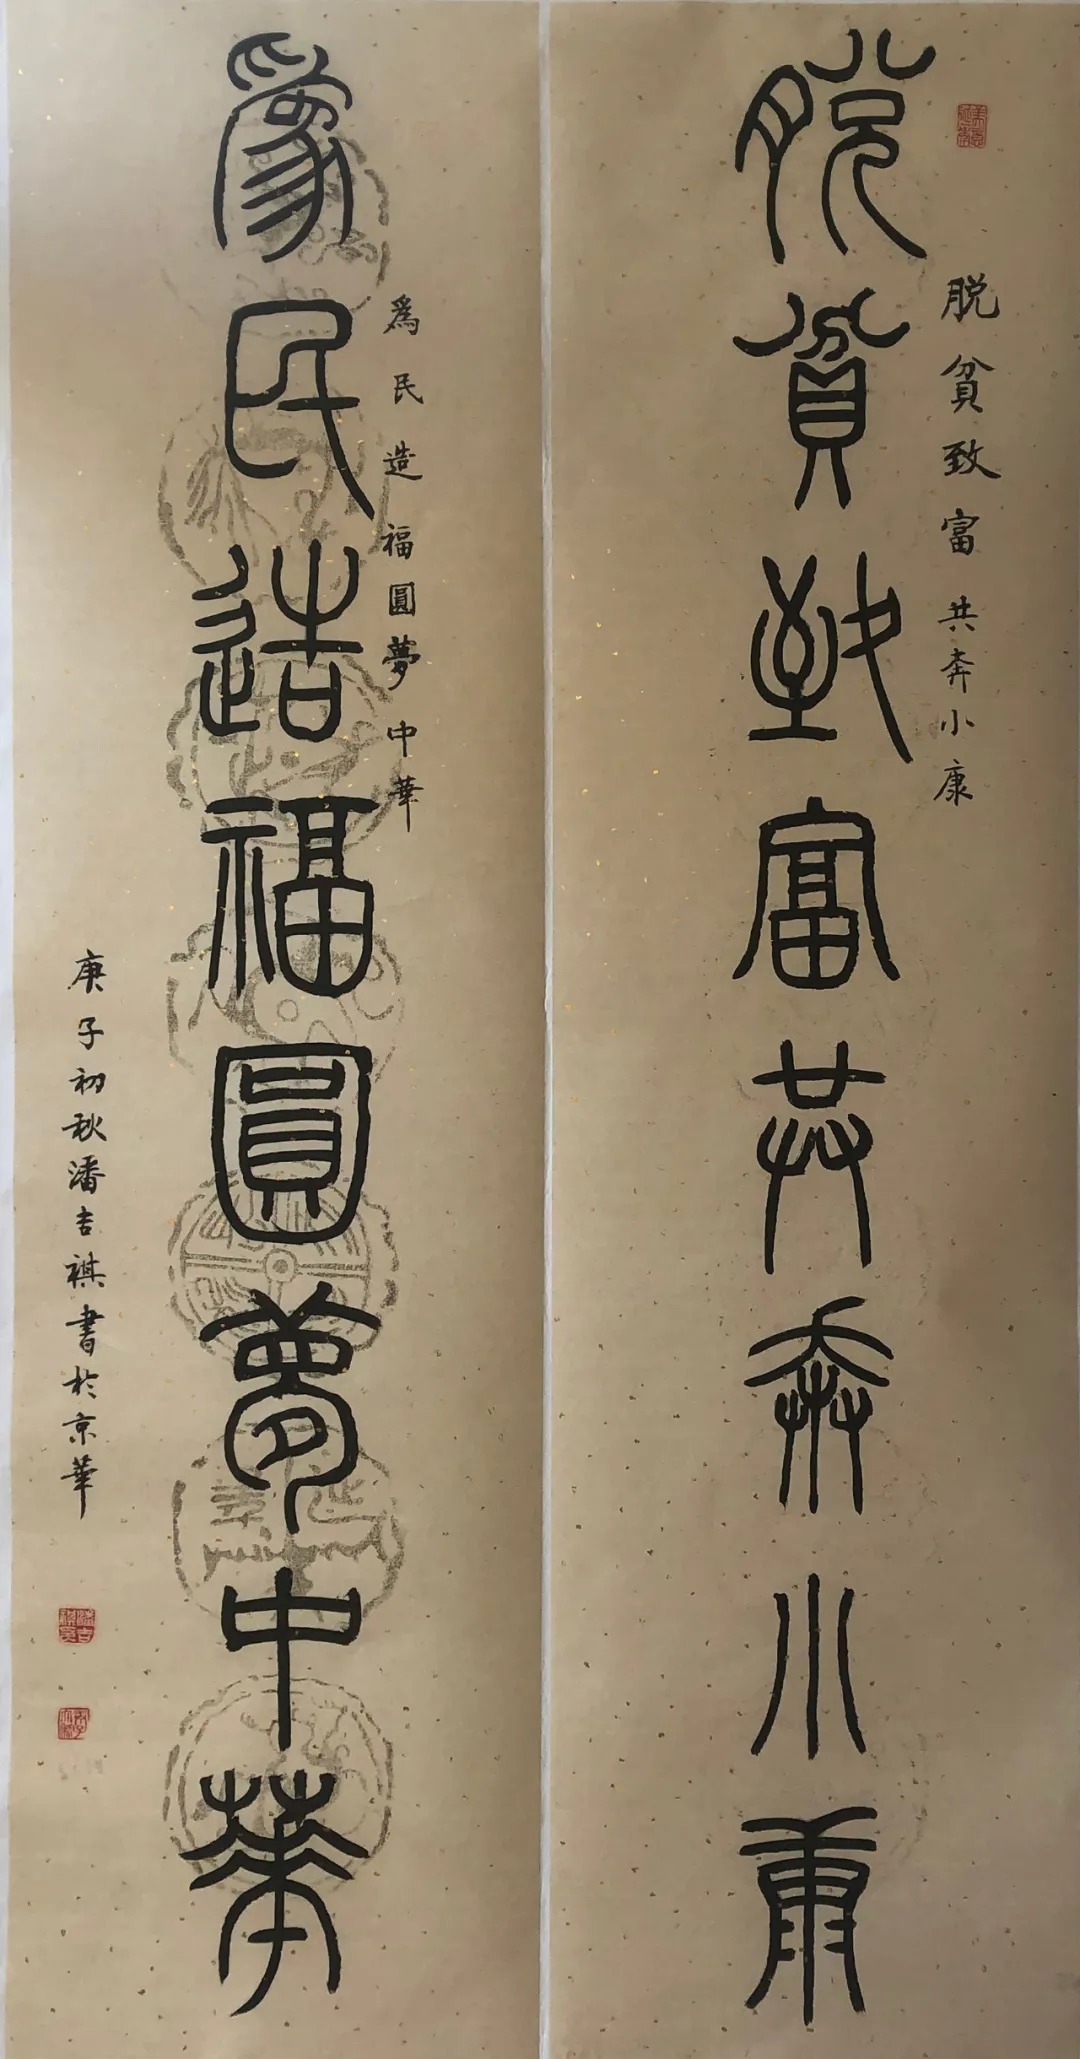 脱貧致富共奔小康
脱貧致富共奔小康
爲民造福圓夢中華
爲民造福圓夢中華
庚子初秋潘吉祺書於京華